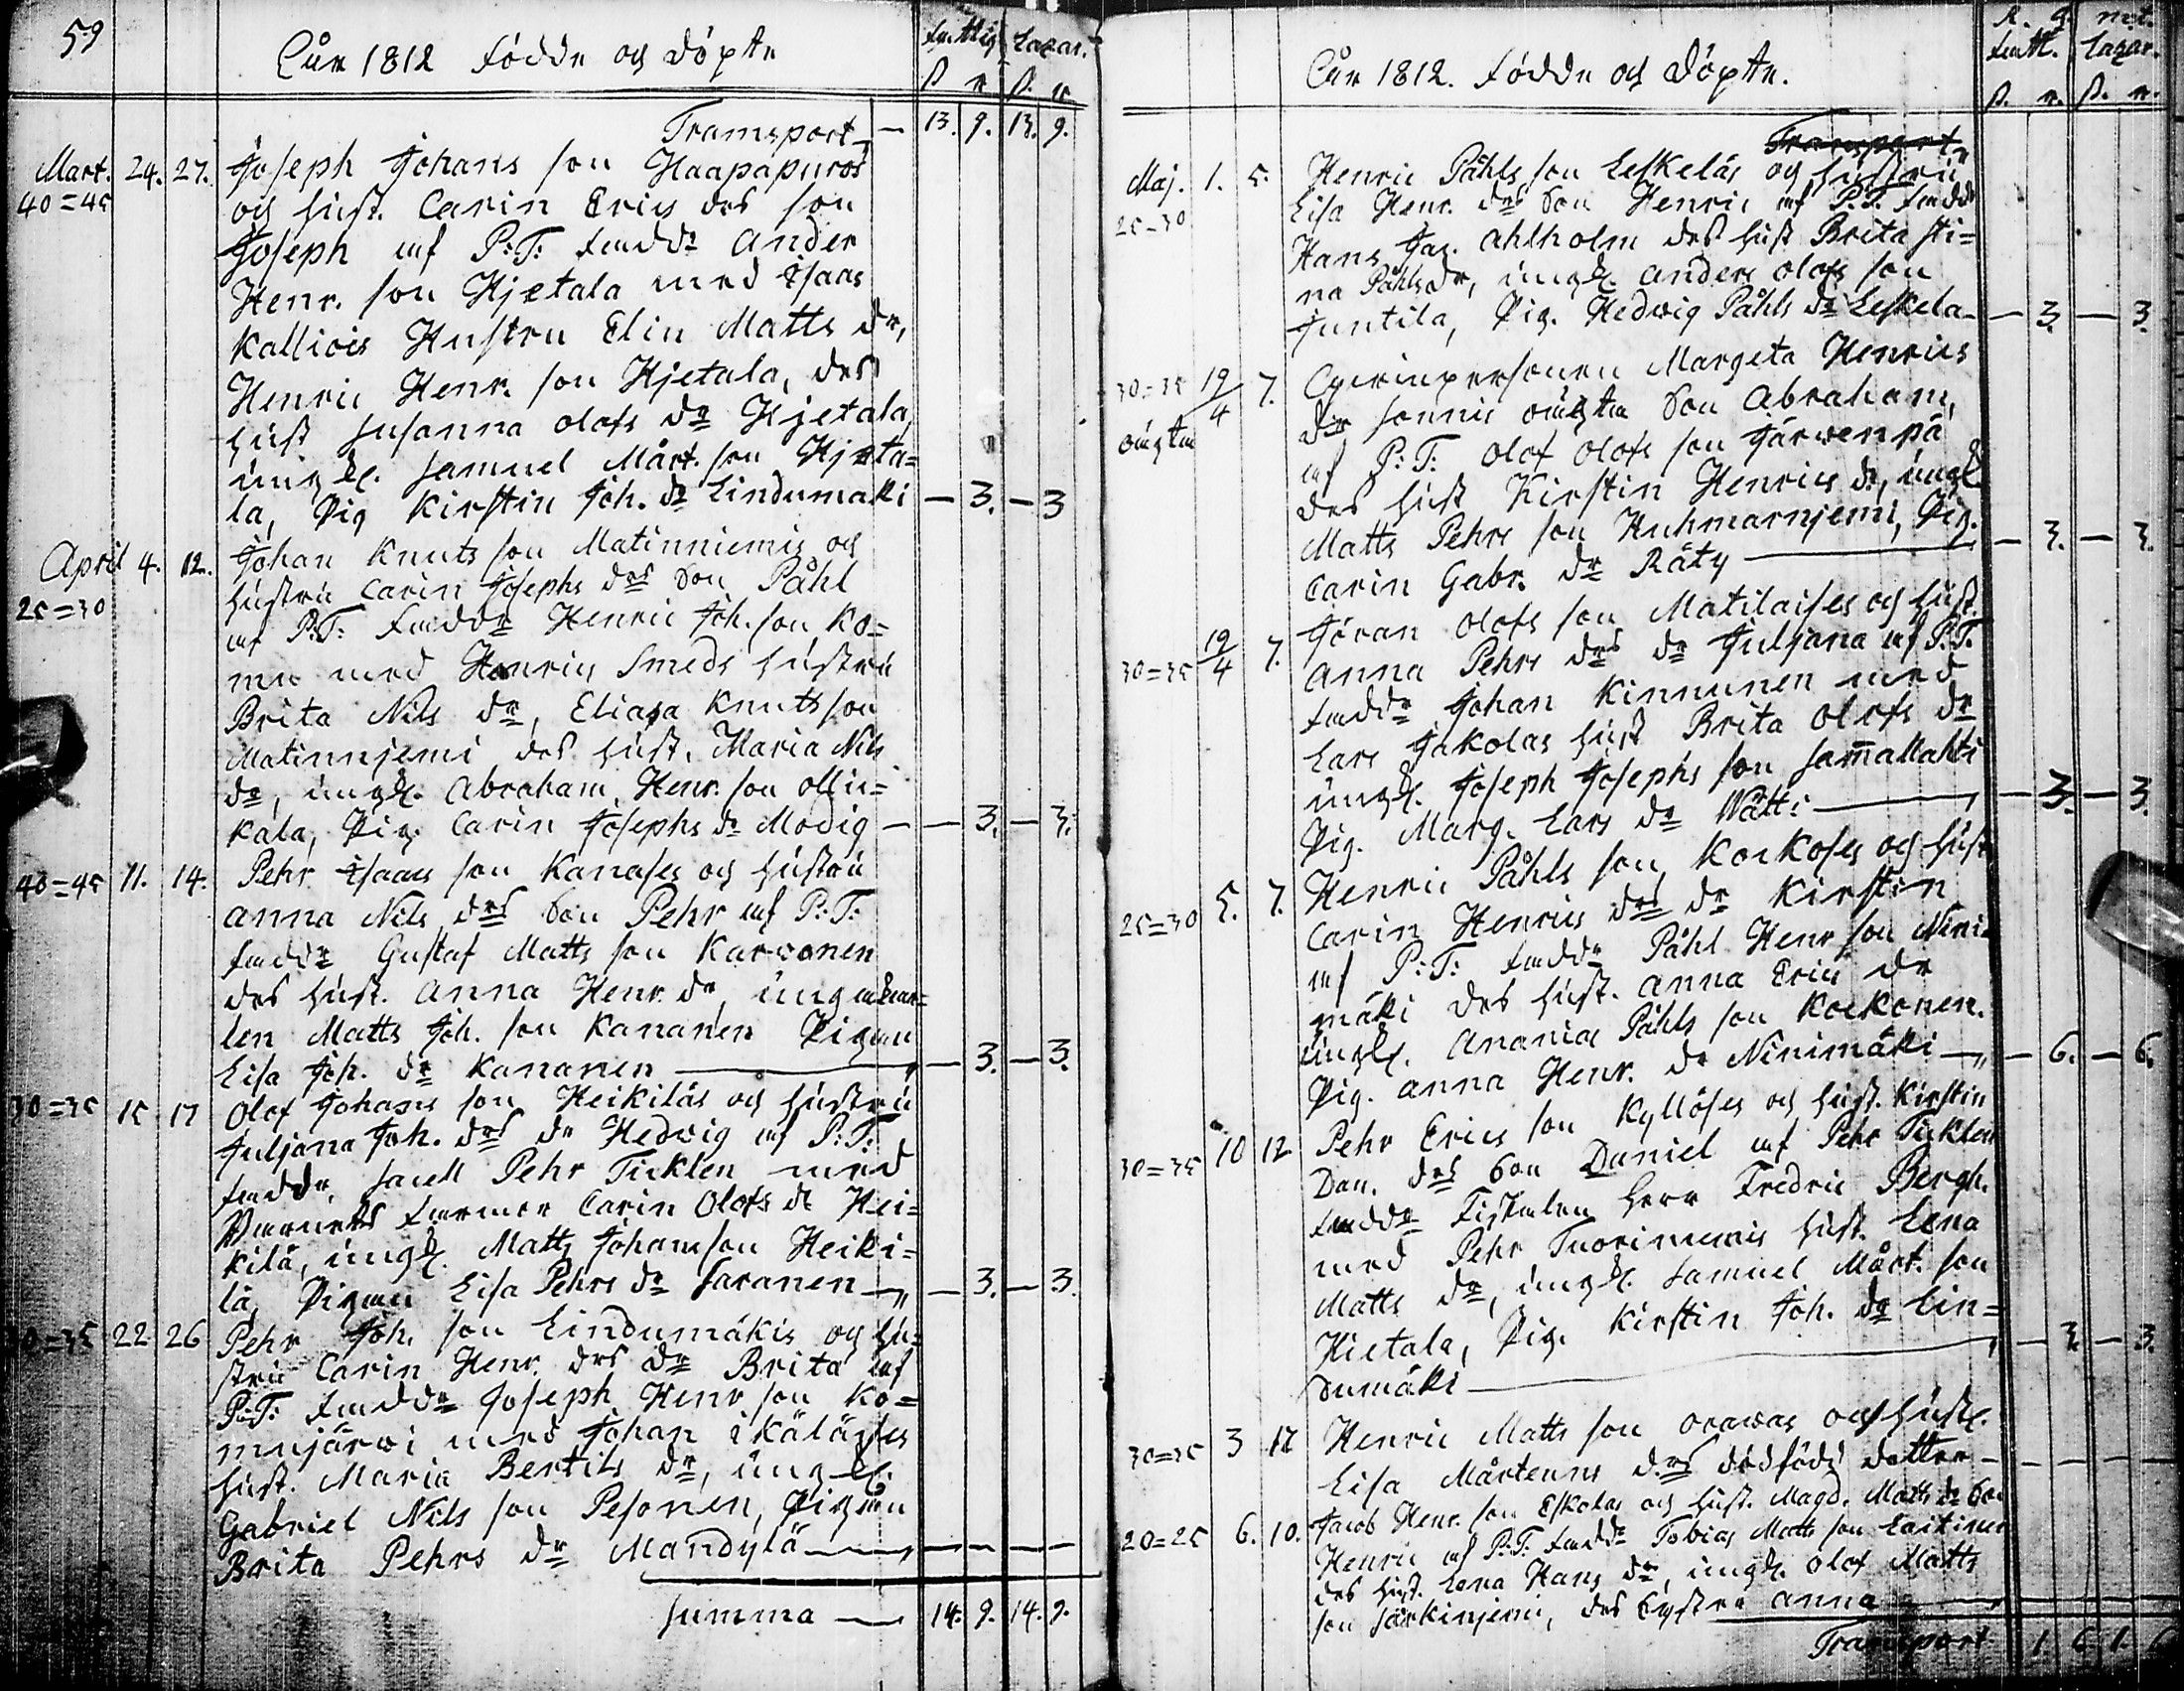 59
Åår 1812 födde och döpte
fattig Lazar.
ß r ß. r
Transport — 13. 9. 13. 9.
Mart. 24. 27. Joseph Johans son Haapapuros
40=45 och hust. Carin Erics drs son
Joseph af P:T: faddr Ander
Henr. son Hjetala med Isaac
Kalliois Hustru Elin Matts dr,
Henric Henr. son Hjetala, des
hust Susanna Olofs dr Hjetala
ungk. Samuel Mårt. son Hjeta=
la, Pig Kirstin Joh. dr Lindumäki — 3. — 3
April 4. 12. Johan Knuts son Matinniemis och
25=30 hustru Carin Josephs drs Son Påhl
af P:T: Faddr Henric Joh. son Ko=
mu med Henrics Smeds hustru
Brita Nils dr, Eliasa Knuts son
Matinnjemi des hust. Maria Nils
dr, ungk. Abraham Henr. son Olli=
kala, Pig. Carin Josephs dr Modig — — 3. — 3.
40=45 11. 14. Pehr Isaacs son Kanases och hustru
Anna Nils drs Son Pehr af P:T:
faddr Gustaf Matts son Karvonen
des hust. Anna Henr. dr, ungkar=
len Matts Joh. son Kananen Pigan
Lisa Joh. dr Kananen — — 3. — 3.
30=35 15 17 Olof Johans son Heikiläs och hustru
Juljana Joh. drs dr Hedvig af P:T:
faddr, Pehr Ticklen med
Barnets farmor Carin Olofs dr Hei=
kilä, ungk. Matts Johans son Heiki=
lä, Pigan Lisa Pehrs dr Saranen — — 3. — 3.
30=35 22 26 Pehr Joh. son Lindumäkis och hu=
stru Carin Henr. drs dr Brita af
P:T: Faddr Joseph Henr. son Ko=
mujärwi med Johan Ikäläises
hust. Maria Bertils dr, ungk.
Gabriel Nils son Pesonen, Pigan
Brita Pehrs dr Mandylä — — — — —
Summa — 14. 9. 14. 9.
Åår 1812. födde och döpte.
fatt. Lazar.
ß. r. ß. r.
Transport
Maj. 1. 5. Henric Påhls son Leskeläs och hustru
25=30 Lisa Henr. drs Son Henric af P:T: Faddr
Hans Jac. Ahlholm des hust Brita Sti=
na Påhls dr, ungk. Anders Olofs son
Juntila, Pig. Hedvig Påhls dr Leskela — 3. — 3.
30=35 19/4 7. Margeta Henrics
oägta dr Sonnis oägta Son Abraham,
af P:T: Olof Olofs son Järvenpä
des hust Kirstin Henrics dr, ungk
Matts Pehrs son Huhmarnjemi, Pig.
Carin Gabr. dr Räty — — 3. — 3.
30=35 19/4 7. Jöran Olofs son Matilaises och hust.
Anna Pehrs drs dr Juljana af P:T.
faddr Johan Kinnunen med
Lars Jakolas hust Brita Olofs dr
ungk. Joseph Josephs son Samallahti
Pig. Marg. Lars dr Wätti — — 3. — 3.
25=30 5. 7. Henric Påhls son Korkoses och hust
Carin Henrics drs dr Kirstin
af P:T: Faddr Påhl Henr son Nini=
mäki des hust. Anna Erics dr
ungk. Anania Påhls son Korkonen.
Pig. Anna Henr. dr Ninimäki — — 6. — 6.
30=35 10 12 Pehr Erics son Kyllöses och hust. Kirstin
Dan. drs Son Daniel af Pehr Ticklen
faddr Fiskalen Herr Fredric Bergh.
med Pehr Tuorimiemis hust. Lena
Matts dr, ungk. Samuel Mårt. son
Hietala, Pig. Kirstin Joh. dr Lin=
dumäki — — 3. — 3.
30=35 3 12 Henric Matts son Orawas och hust.
Lisa Mårtenns drs dödfödd dotter — — — —
20=25 6. 10. Jacob Henr. son Eskolas och hust. Magd. Matts dr Son
Henric af P:T. faddr Tobias Matts son Laitinen
des hust. Lena Hans dr, ungk. Olof Matts
son Särkinjemi, des Syster Anna —
Transport 1. 6. 1. 6